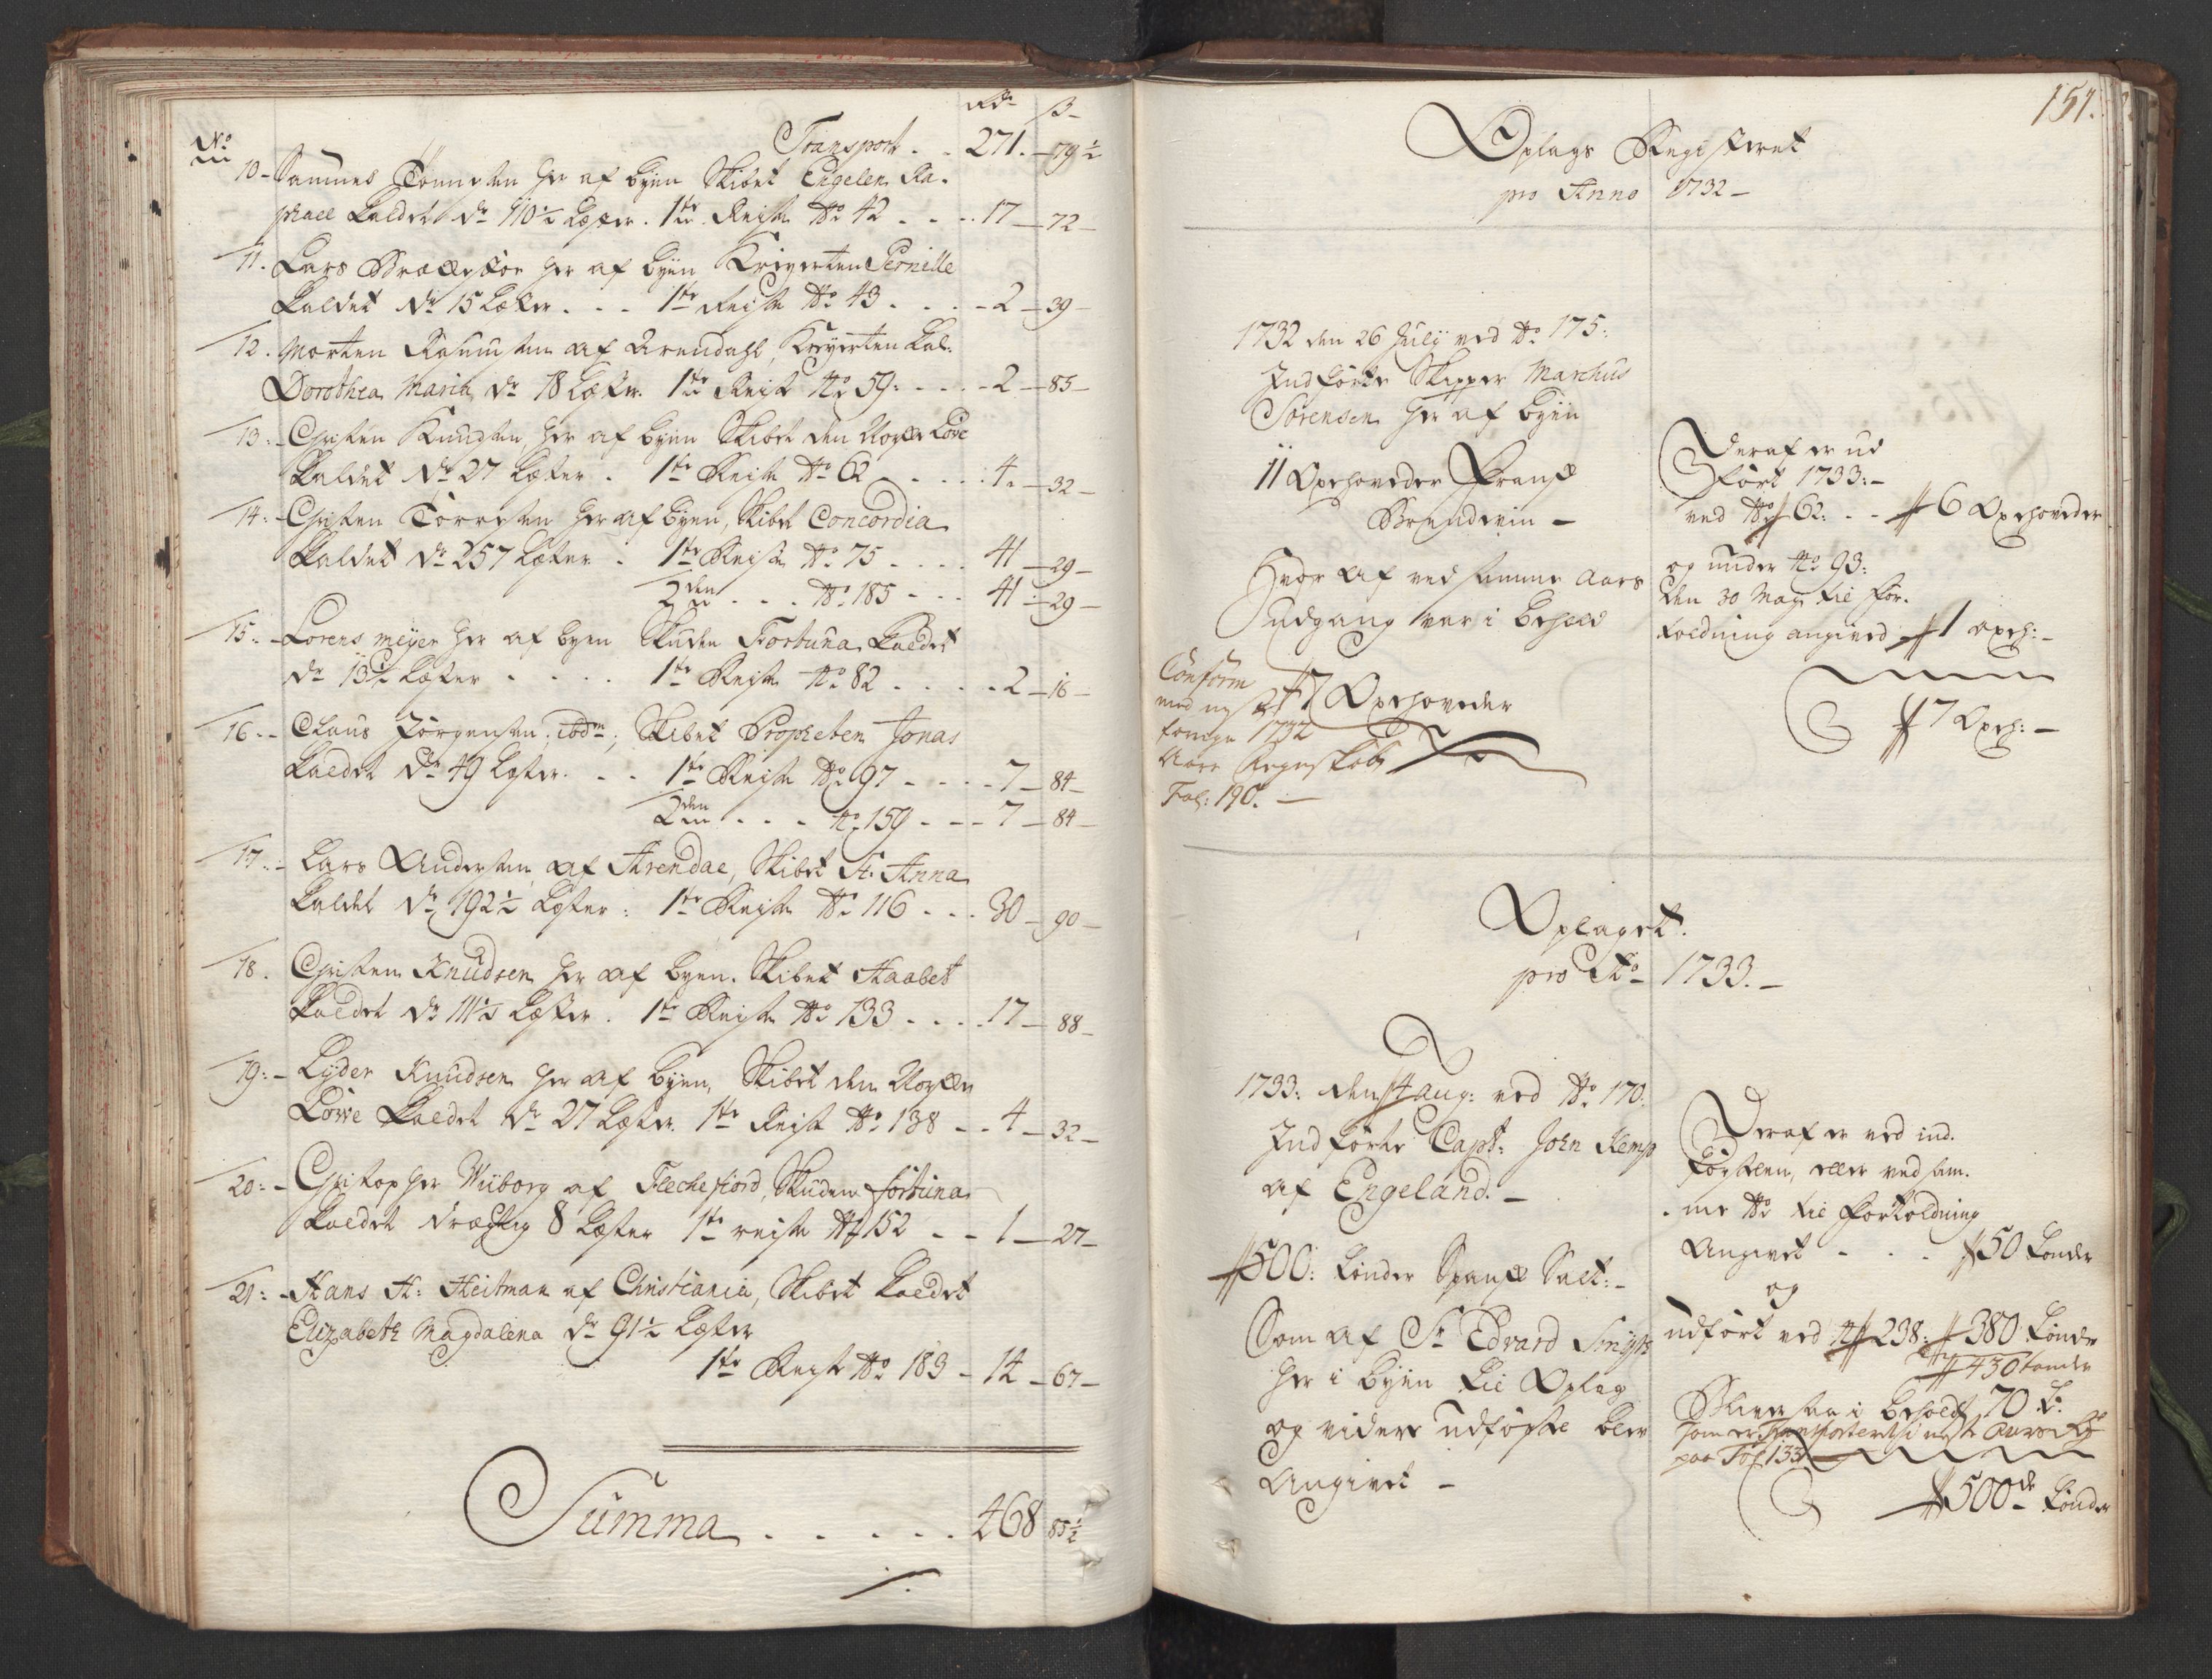 Rdr ß
No
Transport . . 271. — 79½
10 - Sannes Tønnesen her af byen Skibet Engelen Ra-
phael kaldet dr 110½ Læster. 1te Reise No 42 . . . 17 — 72 —
11. Lars her af byen Kreyerten Pernille
kaldet dr 15 Læster . . . 1te Reise No 43 . . . . 2 — 39 —
12. Morten Rasmusen af Arendahl, Kreyerten kal:
Dorothea Maria dr 18 Læster. 1te Reise No 59: . . . . 2 — 85 —
13: - Christen Knudsen, her af byen Skibet den Love
kaldet dr 27 Læster . 1te Reise No 62 . . . . 4. — 32 —
14: - Christen Torresen her af byen, Skibet Concordia
kaldet dr 257 Læster . 1te Reise No 75 . . . . 41 — 29 —
2den . . . No 185 . . . 41 — 29 —
15: - Lorens Meyer her af byen Skuden Fortuna kaldet
dr 13½ Læster . . . . 1te Reise No 82 . . . . . 2 — 16 —
16: - Claus Jørgensen, ibdm; Skibet Propheten Jonas
kaldet dr 49 Læster. . . 1te Reise No 97 . . . . 7 — 84 —
2den . . . No 159 . . . 7 — 84 —
17: - Lars Andersen af Arendal, Skibet St. Anna
kaldet dr 192½ Læster: 1te Reise No 116 . . . 30 — 90 —
18. Christen Knudsen her af byen. Skibet Haabet
kaldet dr 111½ Læster. 1te Reise No 133 . . . . 17 — 88 —
19: - Lyder Knudsen her af byen, Skibet den
Løve kaldet dr 27 Læster. 1te Reise No 138 - - 4 — 32 —
20: - Christopher Wiiborg af Flechefiord, Skuden fortuna
kaldet drægtig 8 Læster 1te reise No 152 - - 1 — 27 —
21: - Hans H: Heitman af Christiania, Skibet kaldet
Elizabeth Magdalena dr 91½ Læster
1te Reise No 183 - 14 — 67 —
Summa . . . . . 468 85½
151.
Oplags Registeret
pro Anno 1732 —
1732 den 26 July ved No 175:
Indførte Skipper Marchus
Sörensen her af byen
11 Oxehoveder Fransk
Brendevin —
Hvor af ved samme Aars
Udgang var i behold
7 Oxehoveder
Conform
med
1732
Aars Regnskab
Fol: 190. —
Deraf er ud
ført 1733: —
ved No 62: . . 6 Oxehoveder
og under No 93:
den 30 May til for-
toldning angived 1 oxeh: —
7 Oxeh: —
Oplaget.
pro Ao 1733. —
1733: den 4 aug: ved No 170.
Indførte Capt: John Kemp
af Engeland. —
500: tönder Spansk Salt: —
Som af Sr Edvard Smyth
her i byen til Oplag
og videre udførsel blev
Angivet —
Deraf er ved ind-
førselen, eller ved sam-
me No til fortoldning
Angivet - . . 50 tönder
og
udført ved No 238: 380 tönder
430 tønder
Bliver saa i behold 70 t:
som er Transporteret i neste Aars
paa Fol 133
500de tönder